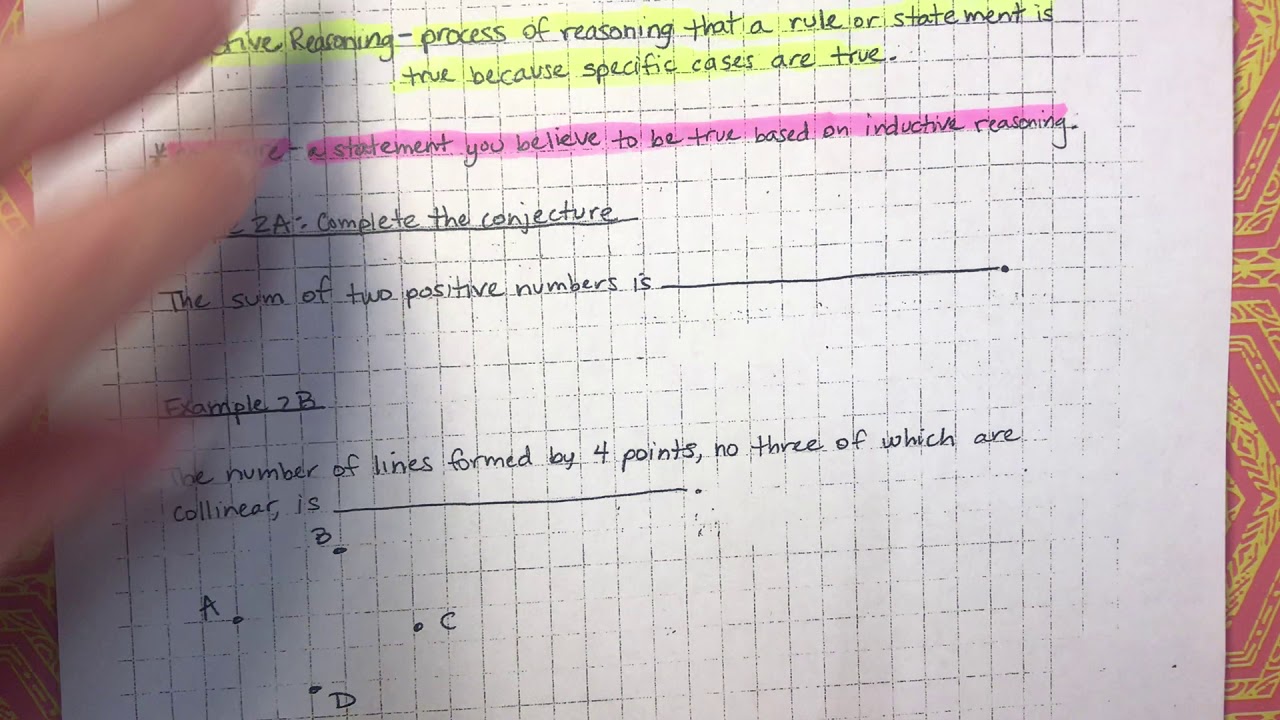 Reasoning - process of reasoning that a rule or statement is
true because specific cases are true.
* - a statement you believe to be true based on inductive reasoning.
2A: Complete the conjecture
The sum of two positive numbers is
Example 2B
The number of lines formed by 4 points, no three of which are
collinear, is .
B
A
C
D